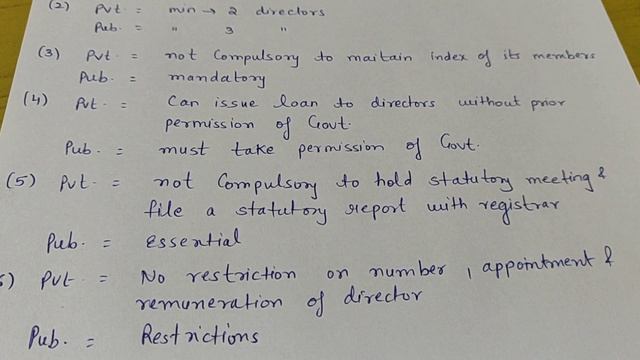 (2) Pvt. = min → 2 directors
Pub. = " 3 "
(3) Pvt. = not Compulsory to maitain index of its members
Pub. = mandatory
(4) Pvt. = Can issue loan to directors without prior
permission of Govt.
Pub. = must take permission of Govt.
(5) Pvt. = not Compulsory to hold statutory meeting &
file a statutory report with registrar
Pub. = Essential
6) Pvt. = No restriction on number, appointment &
remuneration of director
Pub. = Restrictions